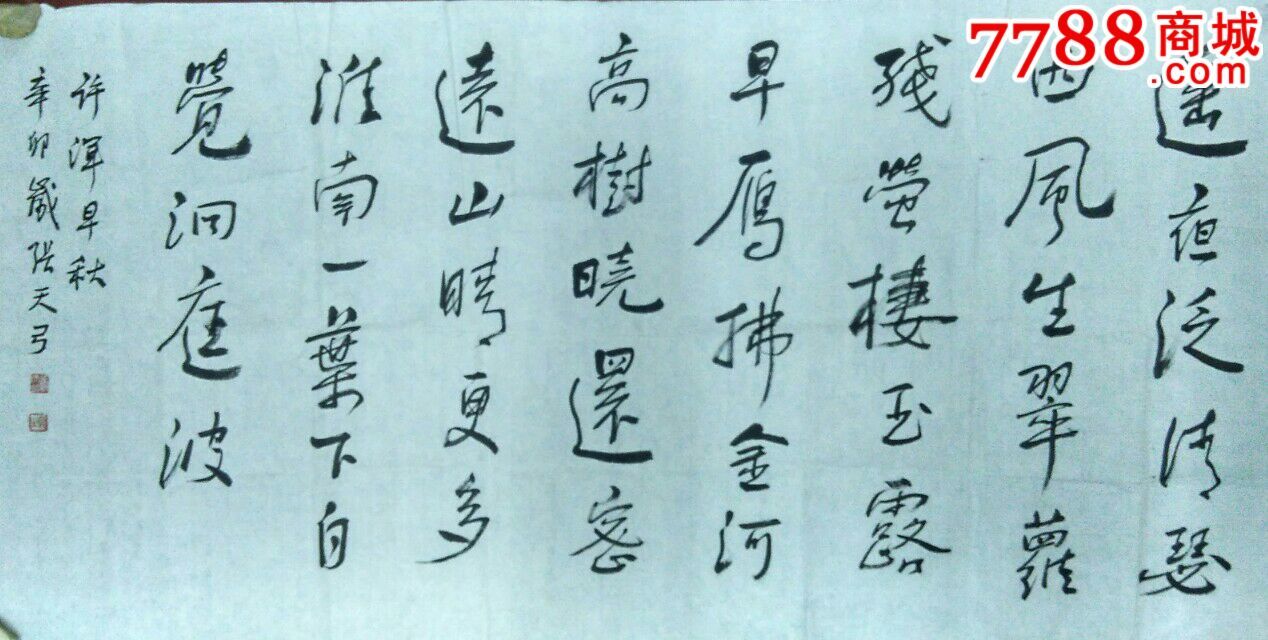 7788商城
.com
遙夜泛清瑟
西風生翠蘿
殘螢棲玉露
早鴈拂金河
高樹曉還密
遠山晴更多
淮南一葉下自
覺洞庭波
許渾早秋
辛卯歲張天弓